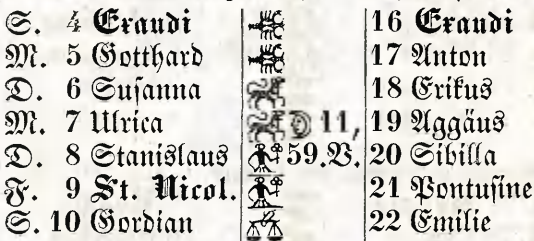 S. 4 Exaudi 16 Exaudi
M. 5 Gotthard 17 Anton
D. 6 Susanna 18 Erikus
M. 7 Ulrica 11, 19 Aggäus
D. 8 Stanislaus 59.V. 20 Sibilla
F. 9 St. Nicol. 21 Pontusine
S. 10 Gordian 22 Emilie